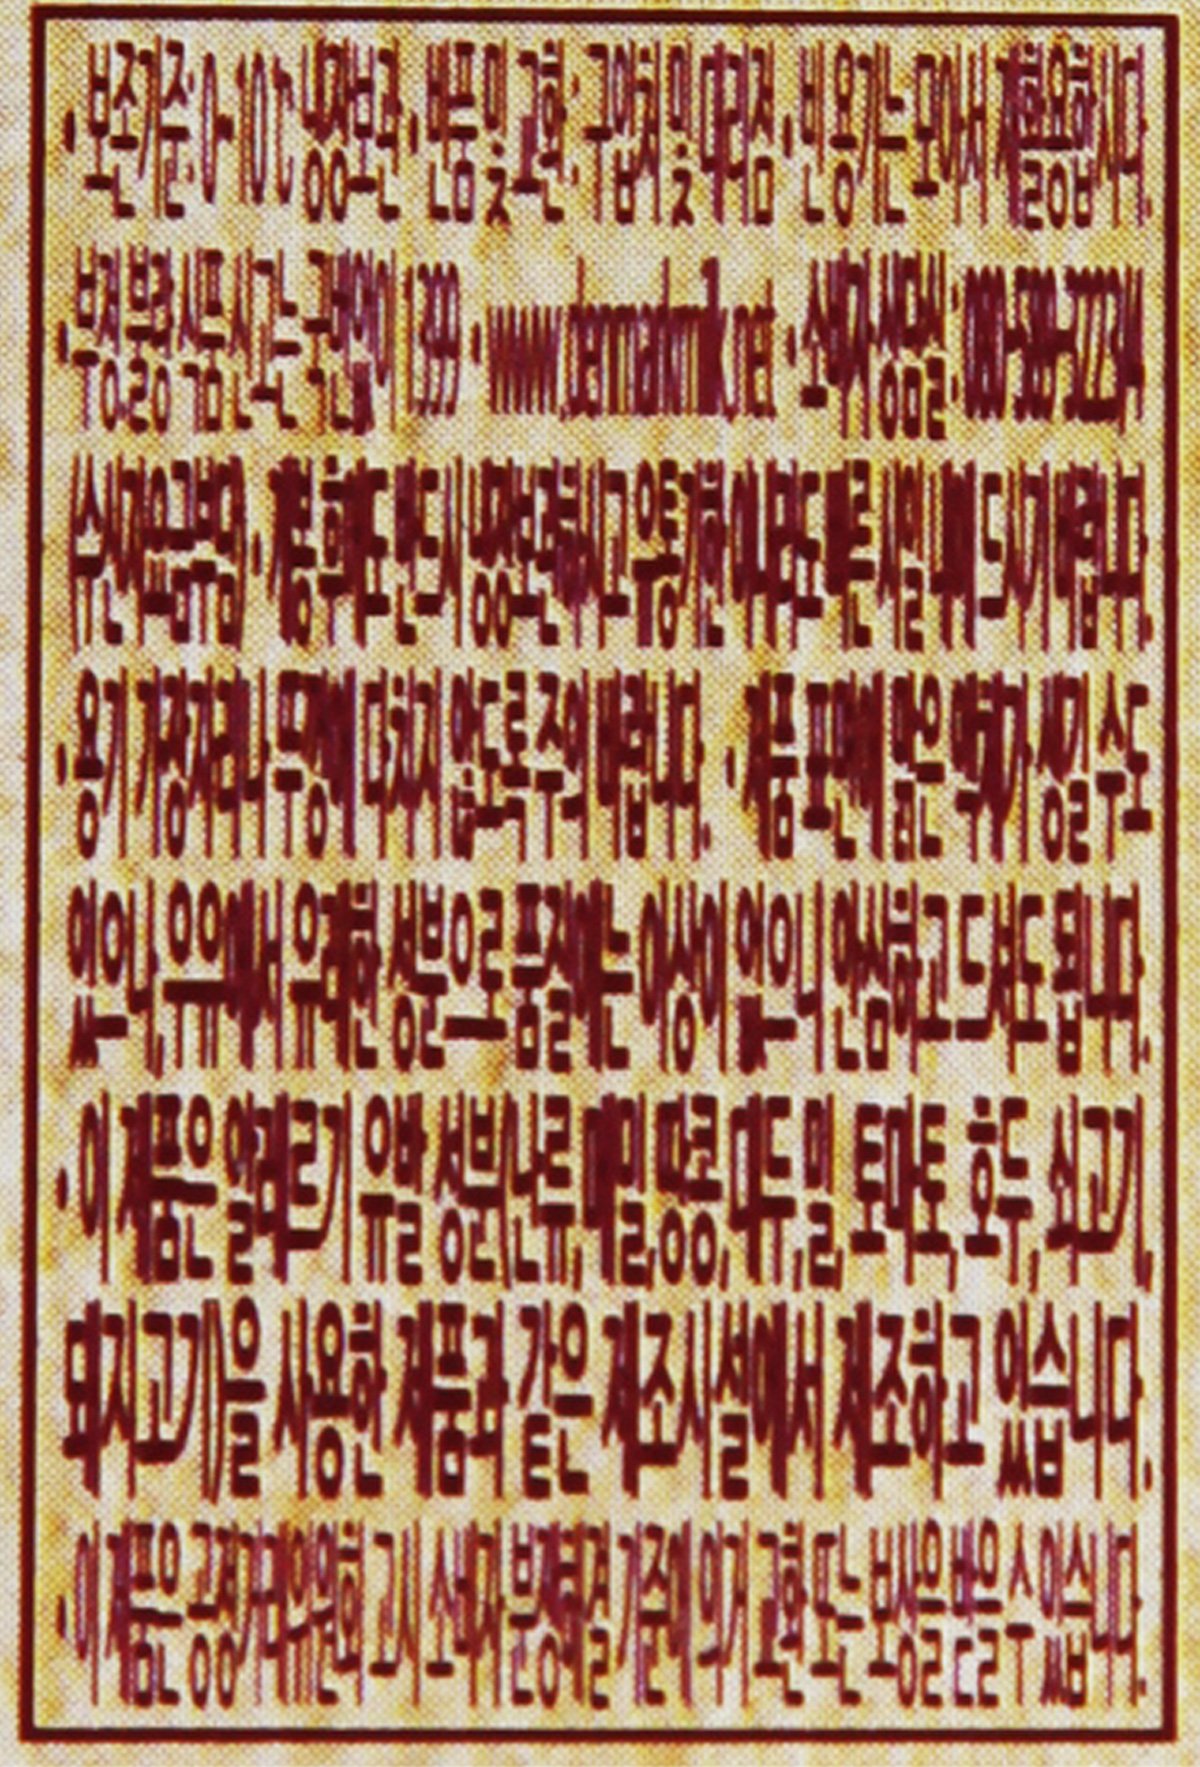 ·보존기준:0~10℃ 냉장보관 ·반품 및 교환: 구입처 및 대리점 ·빈 용기는 모아서 재활용합시다.
·부정·불량 식품 신고는 국번없이 1399 ·www.denmarkmilk.net ·소비자 상담실:
수신자 요금부담) ·개봉 후에는 반드시 냉장보관하시고 유통기한 이내라도 빠른 시일내에 드시기 바랍니다.
·용기 가장자리나 뚜껑에 다치지 않도록 주의 바랍니다. ·제품 표면에 맑은 액체가 생길 수도
있으나, 우유에서 유래한 성분으로 품질에는 이상이 없으니 안심하고 드셔도 됩니다.
·이 제품은 알레르기 유발 성분(난류, 메밀, 땅콩, 대두, 밀, 토마토, 호두, 쇠고기,
돼지고기)을 사용한 제품과 같은 제조시설에서 제조하고 있습니다.
·이 제품은 공정거래위원회 고시 소비자분쟁해결기준에 의거 교환 또는 보상을 받을 수 있습니다.